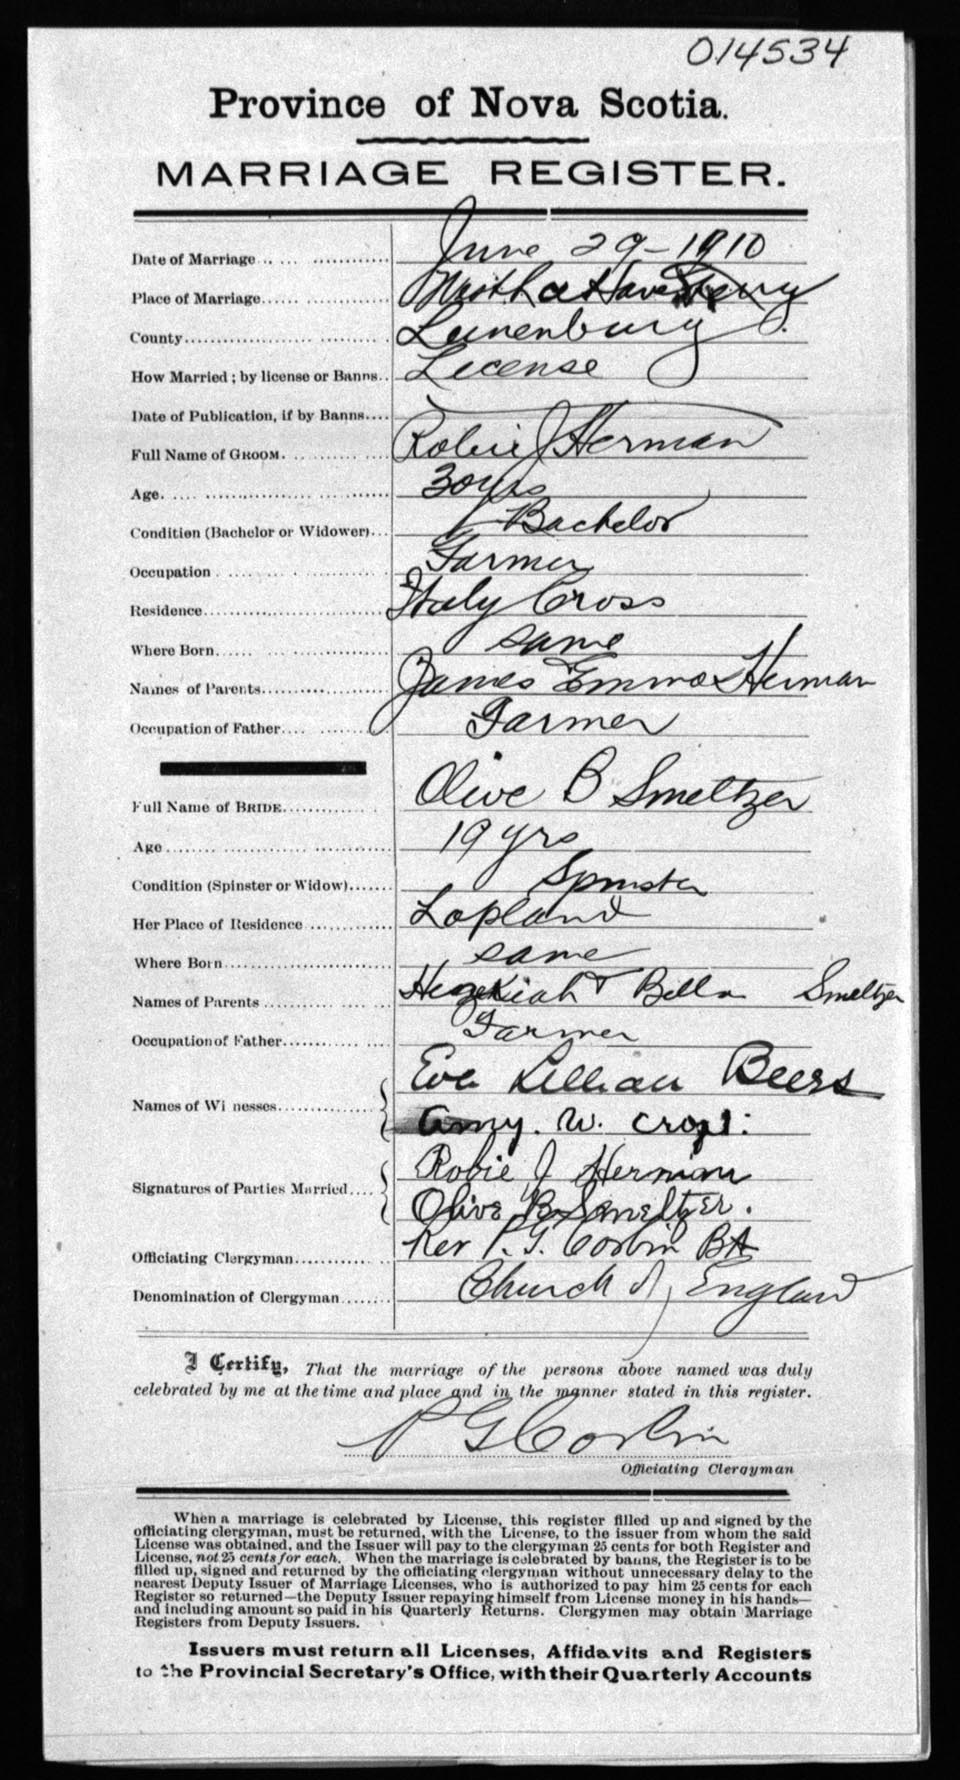 014534
Province of Nova Scotia.
MARRIAGE REGISTER.
Date of Marriage June 29-1910
Place of Marriage
County Lunenburg
How Married; by license or Banns License
Date of Publication, if by Banns
Full Name of GROOM. Robie J Herman
Age. 30 yrs
Condition (Bachelor or Widower) Bachelor
Occupation Farmer
Residence Italy Cross
Where Born same
Names of Parents James Emma Herman
Occupation of Father Farmer
Full Name of BRIDE Olive B Smeltzer
Age 19 yrs
Condition (Spinster or Widow) Spinster
Her Place of Residence Lapland
Where Born same
Names of Parents Hezekiah & Bella Smeltzer
Occupation of Father Farmer
Names of Wi nesses Eva Lillian Beers
Amy. W.
Signatures of Parties Married Robie J Herman
Olive B Smeltzer.
Officiating Clergyman Rev P. G. Corbin BA
Denomination of Clergyman Church of England
I Certify, That the marriage of the persons above named was duly
celebrated by me at the time and place and in the manner stated in this register.
P G Corbin
Officiating Clergyman
When a marriage is celebrated by License, this register filled up and signed by the
officiating clergyman, must be returned, with the License, to the issuer from whom the said
License was obtained, and the Issuer will pay to the clergyman 25 cents for both Register and
License, not 25 cents for each. When the marriage is celebrated by banns, the Register is to be
filled up, signed and returned by the officiating clergyman without unnecessary delay to the
nearest Deputy Issuer of Marriage Licenses, who is authorized to pay him 25 cents for each
Register so returned—the Deputy Issuer repaying himself from License money in his hands—
and including amount so paid in his Quarterly Returns. Clergymen may obtain Marriage
Registers from Deputy Issuers.
Issuers must return all Licenses, Affidavits and Registers
to the Provincial Secretary's Office, with their Quarterly Accounts